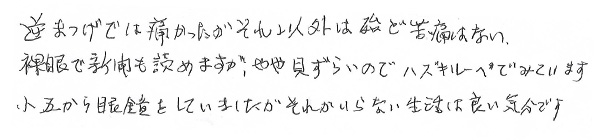 逆まつげでは痛かったがそれ以外は殆ど苦痛はない、
裸眼で新聞も読めますが、やや見ずらいのでハズキルーペでみています
小五から眼鏡をしていましたがそれがいらない生活は良い気分です